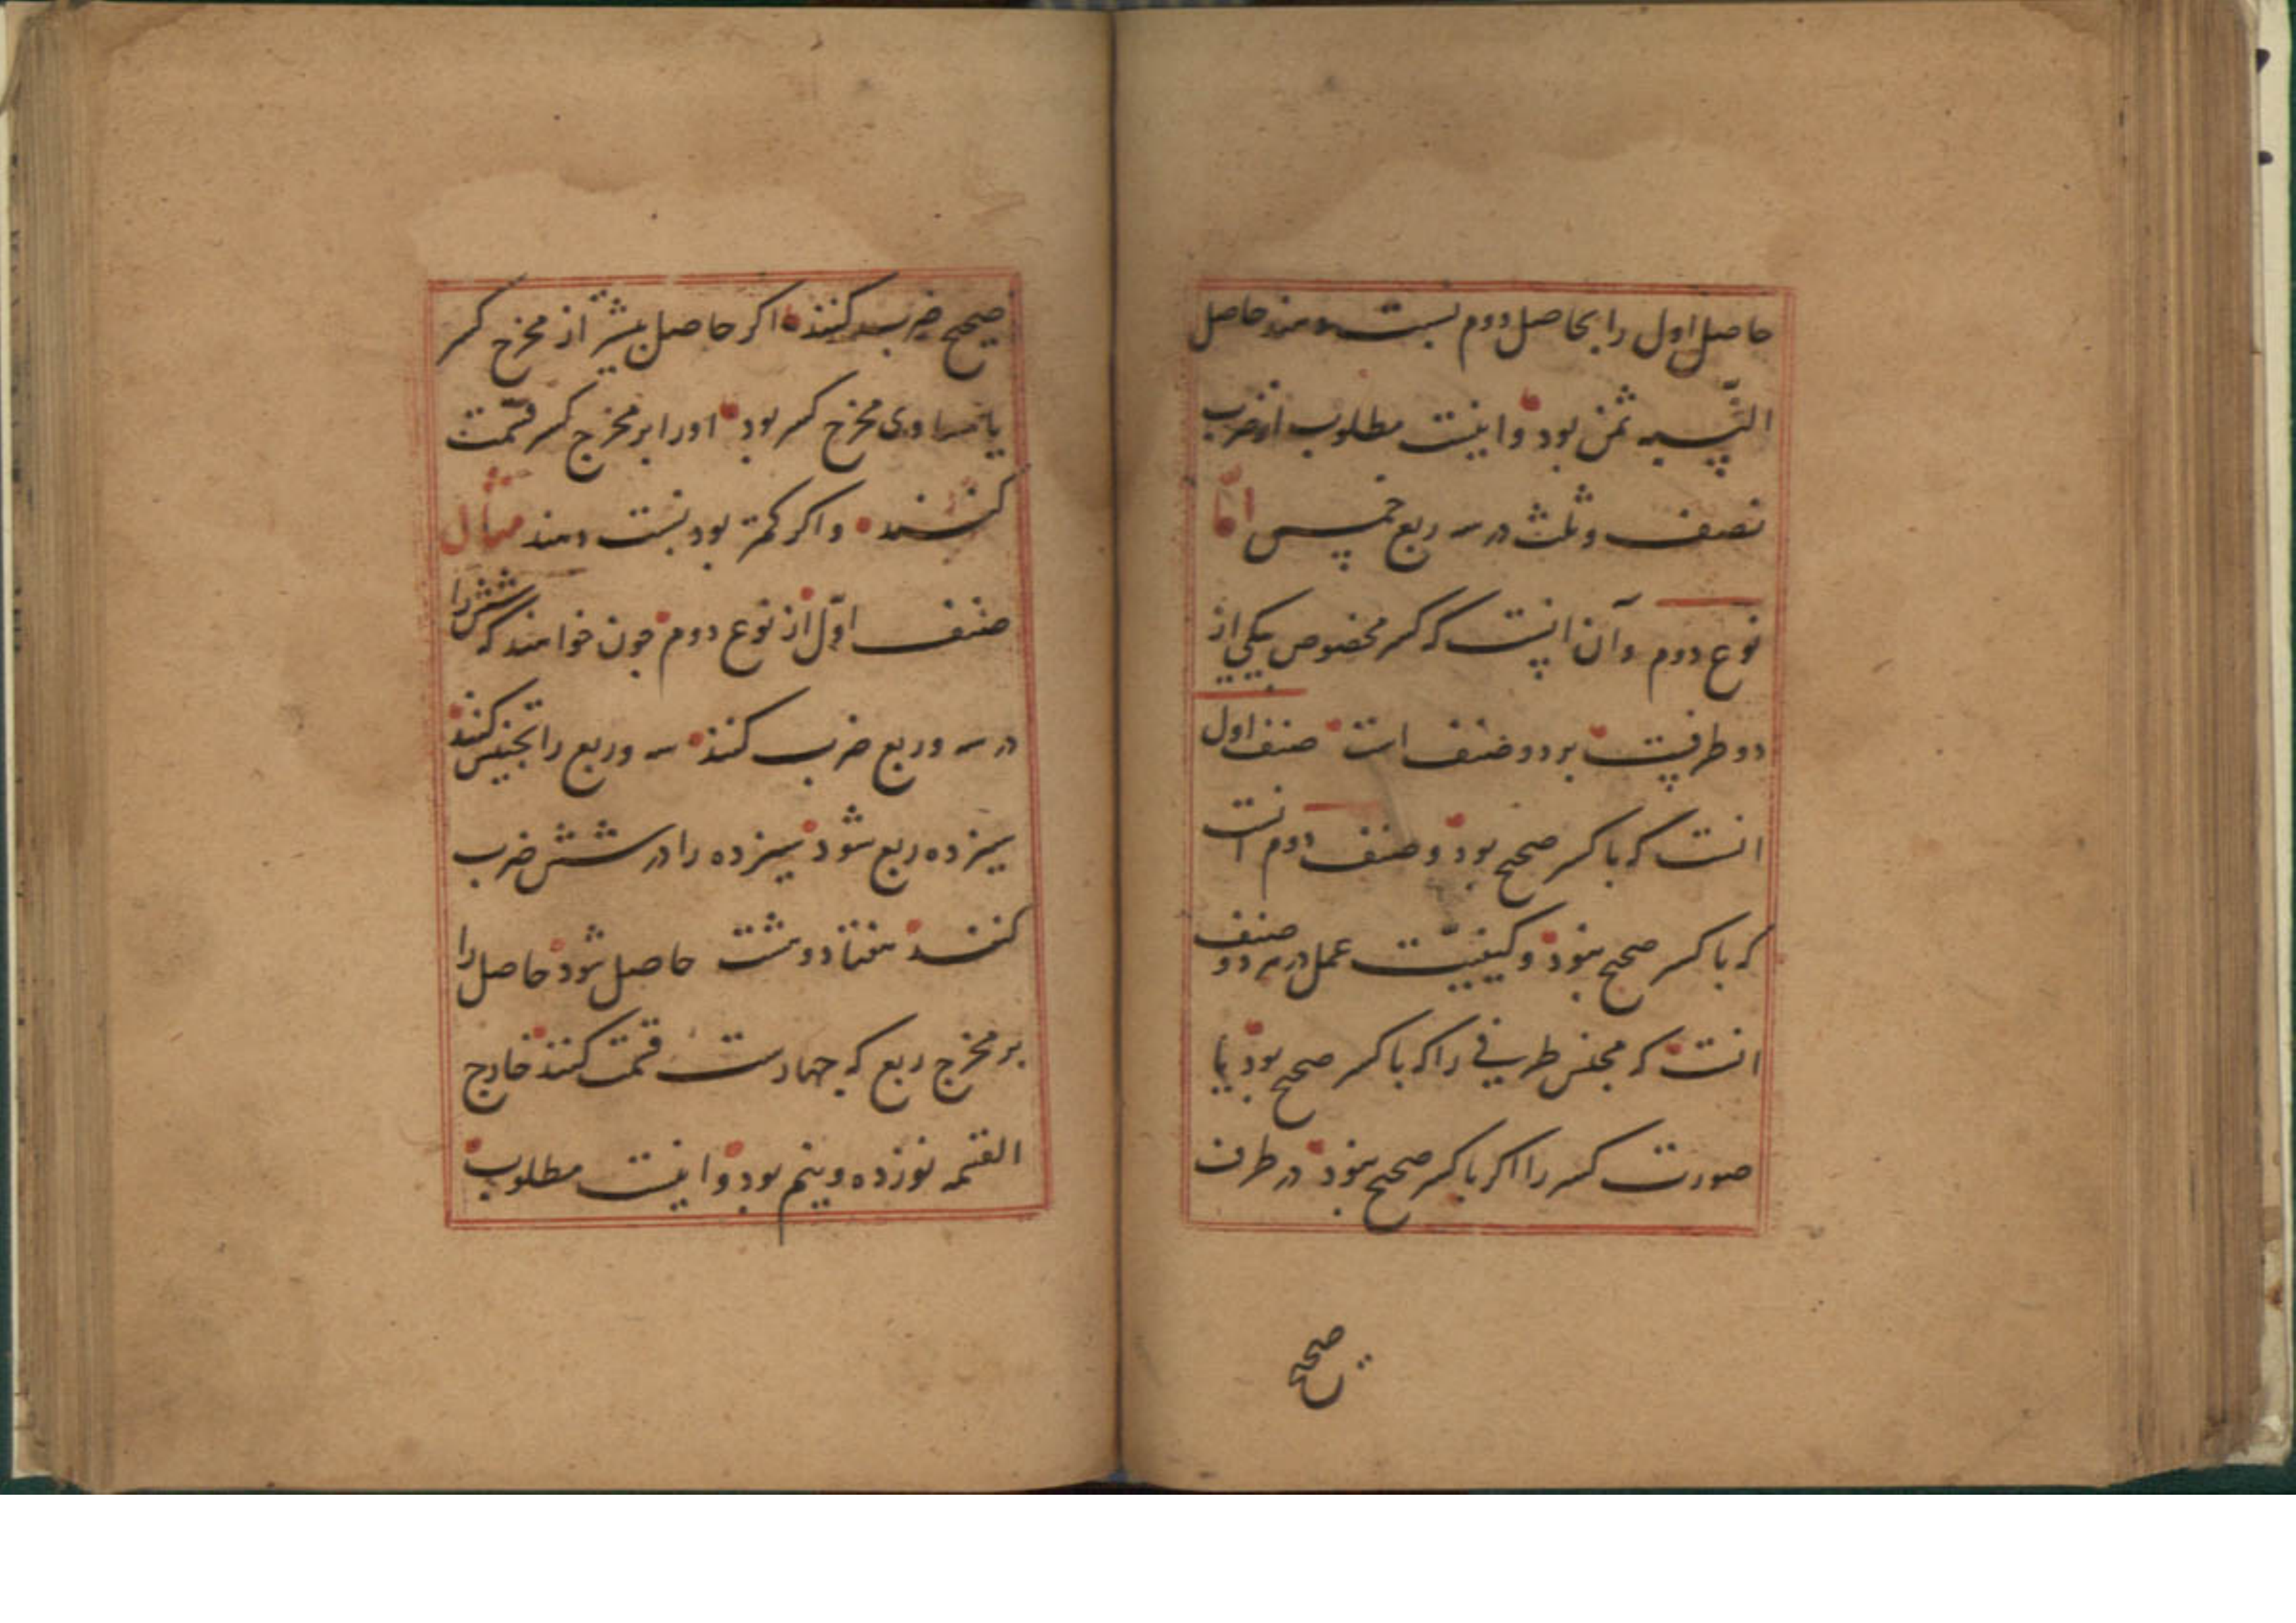 حاصل اول را بحاصل دوم نسبت دهند حاصل
النسبه ثمن بود و اینست مطلوب از ضرب
نصف و ثلث در سه ربع خمس اما
نوع دوم و آن اینست که کسر مخصوص بیکی از
دو طرفست بر دو صنف است صنف اول
انست که با کسر صحیح بود و صنف دوم انست
که با کسر صحیح نبود و کیفیت عمل در هر دو صنف
انست که مجنس طرفی را که با کسر صحیح بود یا
صورت کسر را اکر با کسر صحیح نبود در طرف
صحیح
صحیح ضرب کنند اکر حاصل بیشتر از مخرج کسر
یا مساوی مخرج کسر بود اورا بر مخرج کسر قسمت
کنند و اکر کمتر بود نسبت دهند مثال
صنف اول از نوع دوم چون خواهند که شش را
در سه و ربع ضرب کنند سه و ربع را تجنیس کنند
سیزده ربع شود سیزده را در شش ضرب
کنند هفتاد و هشت حاصل شود حاصل را
بر مخرج ربع که چهارست قسمت کنند خارج
القسمه نوزده و نیم بود و اینست مطلوب